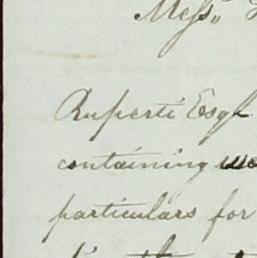 Mess,,
Ruperti Esqr
containing
particulars for